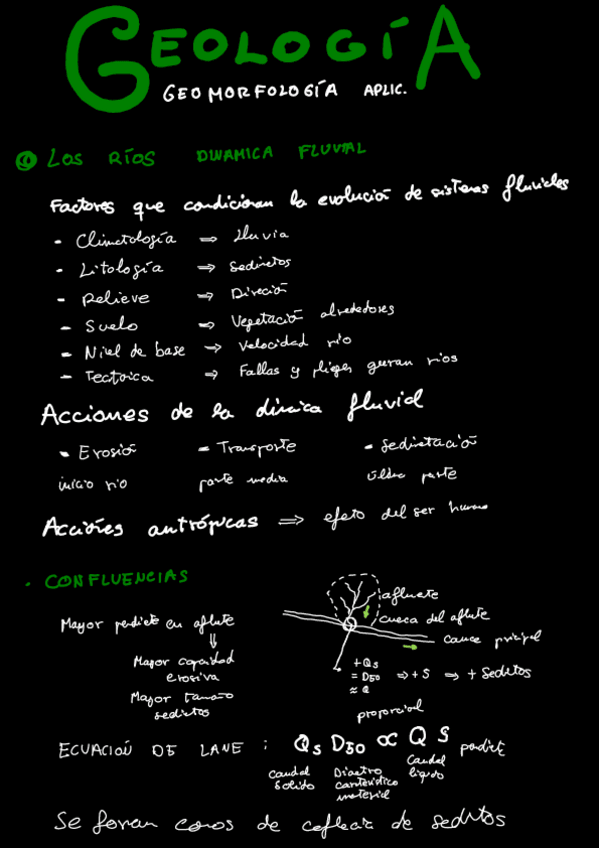 GEOLOGÍA
GEOMORFOLOGÍA APLIC.
LOS RÍOS DINAMICA FLUVIAL
Factores que condicionan la evolución de sistemas fluviales
- Climatología ⇒ Lluvia
- Litología ⇒ Sedinetos
- Relieve ⇒ Direción
- Suelo ⇒ Vegetación alrededores
- Nivel de base → Velocidad río
- Tectoica ⇒ Fallas y plieges gueran rios
Acciones de la dinica fluvial
- Erosión - Transporte - Sedimetación
inicio rio parte media última parte
Acciónes antrópicas ⇒ efeto del ser humano
· CONFLUENCIAS
afluete
cueca del aflute
cauce pricipal
Mayor pediete en aflute
⇓
Mayor capacidad
erosiva
Mayor tamaño
sedietos
+ Qs
= D50 ⇒ + S ⇒ + Sedietos
≈ Q
proporcial
ECUACIÓN DE LANE : Qs D50 ∝ Q S pediete
caudal solido
Diaetro caraterístico material
Caudal líquido
Se foran conos de coflecia de seditos